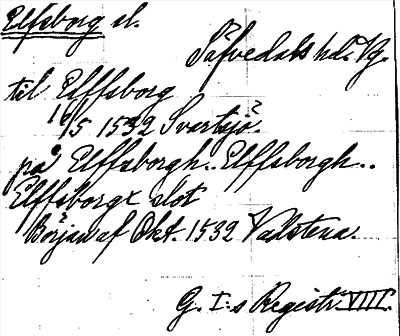 Elfsborg sl.
Säfvedals hd. Vg.
til Elffsborg
16/5 1532 Svartsjö?
på Elffsborgh.. Elffsborgh..
Elffsborgx slot
Början af Okt. 1532 Vadstena.
G. I:s Registr. VIII.